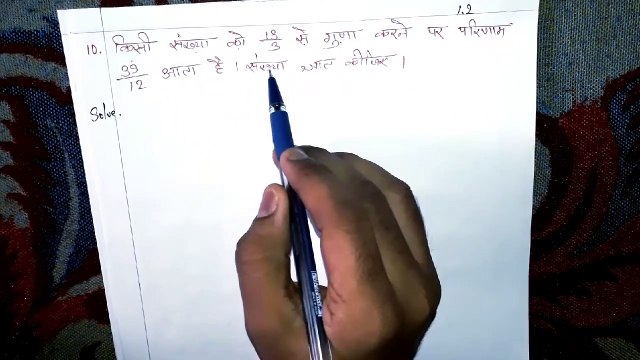 1.2
10. किसी संख्या को 13/3 से गुणा करने पर परिणाम
39/12 आता है । संख्या ज्ञात कीजिए ।
Solve.